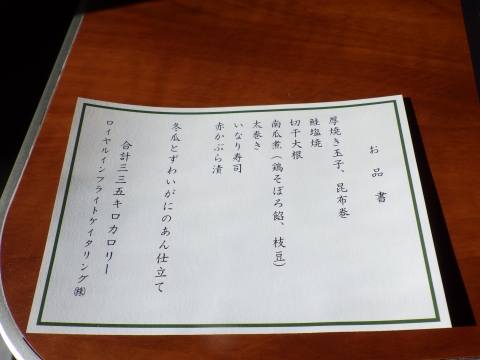 お品書
厚焼き玉子、昆布巻
鮭塩焼
切干大根
南瓜煮(鶏そぼろ餡、枝豆)
太巻き
いなり寿司
赤かぶら漬
冬瓜とずわいがにのあん仕立て
合計三三五キロカロリー
ロイヤルインフライトケイタリング㈱